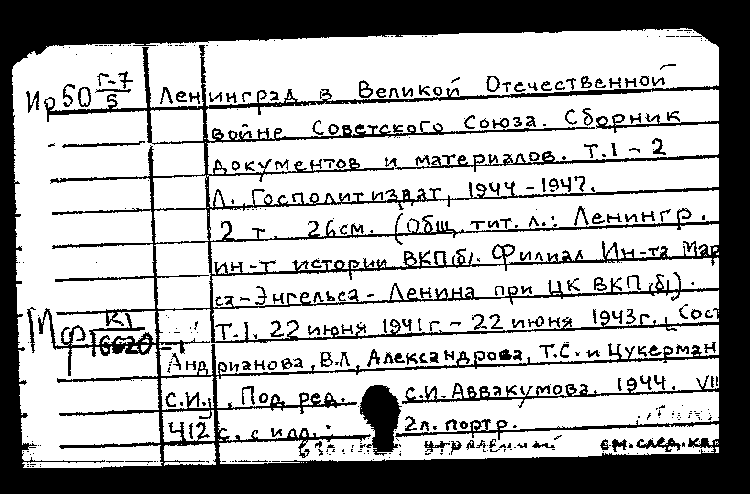 Ир50 Г-7/5 Ленинград в Великой Отечественной
войне Советского Союза. Сборник
документов и материалов. Т.1-2
Л., Госполитиздат, 1944-1947.
2 т. 26см. (Общ. тит. л.: Ленингр.
ин-т истории ВКП(б). Филиал Ин-та Мар
са-Энгельса-Ленина при ЦК ВКП(б).
Мф К1/16620-1 Т.1. 22 июня 1941г. - 22 июня 1943г., Сост
Андрианова, В.Л, Александрова, Т.С. и Цукерман
С.И., Под ред. С.И. Аввакумова. 1944. VII
412 с. с илл.; 2л. портр.
см. след. кар